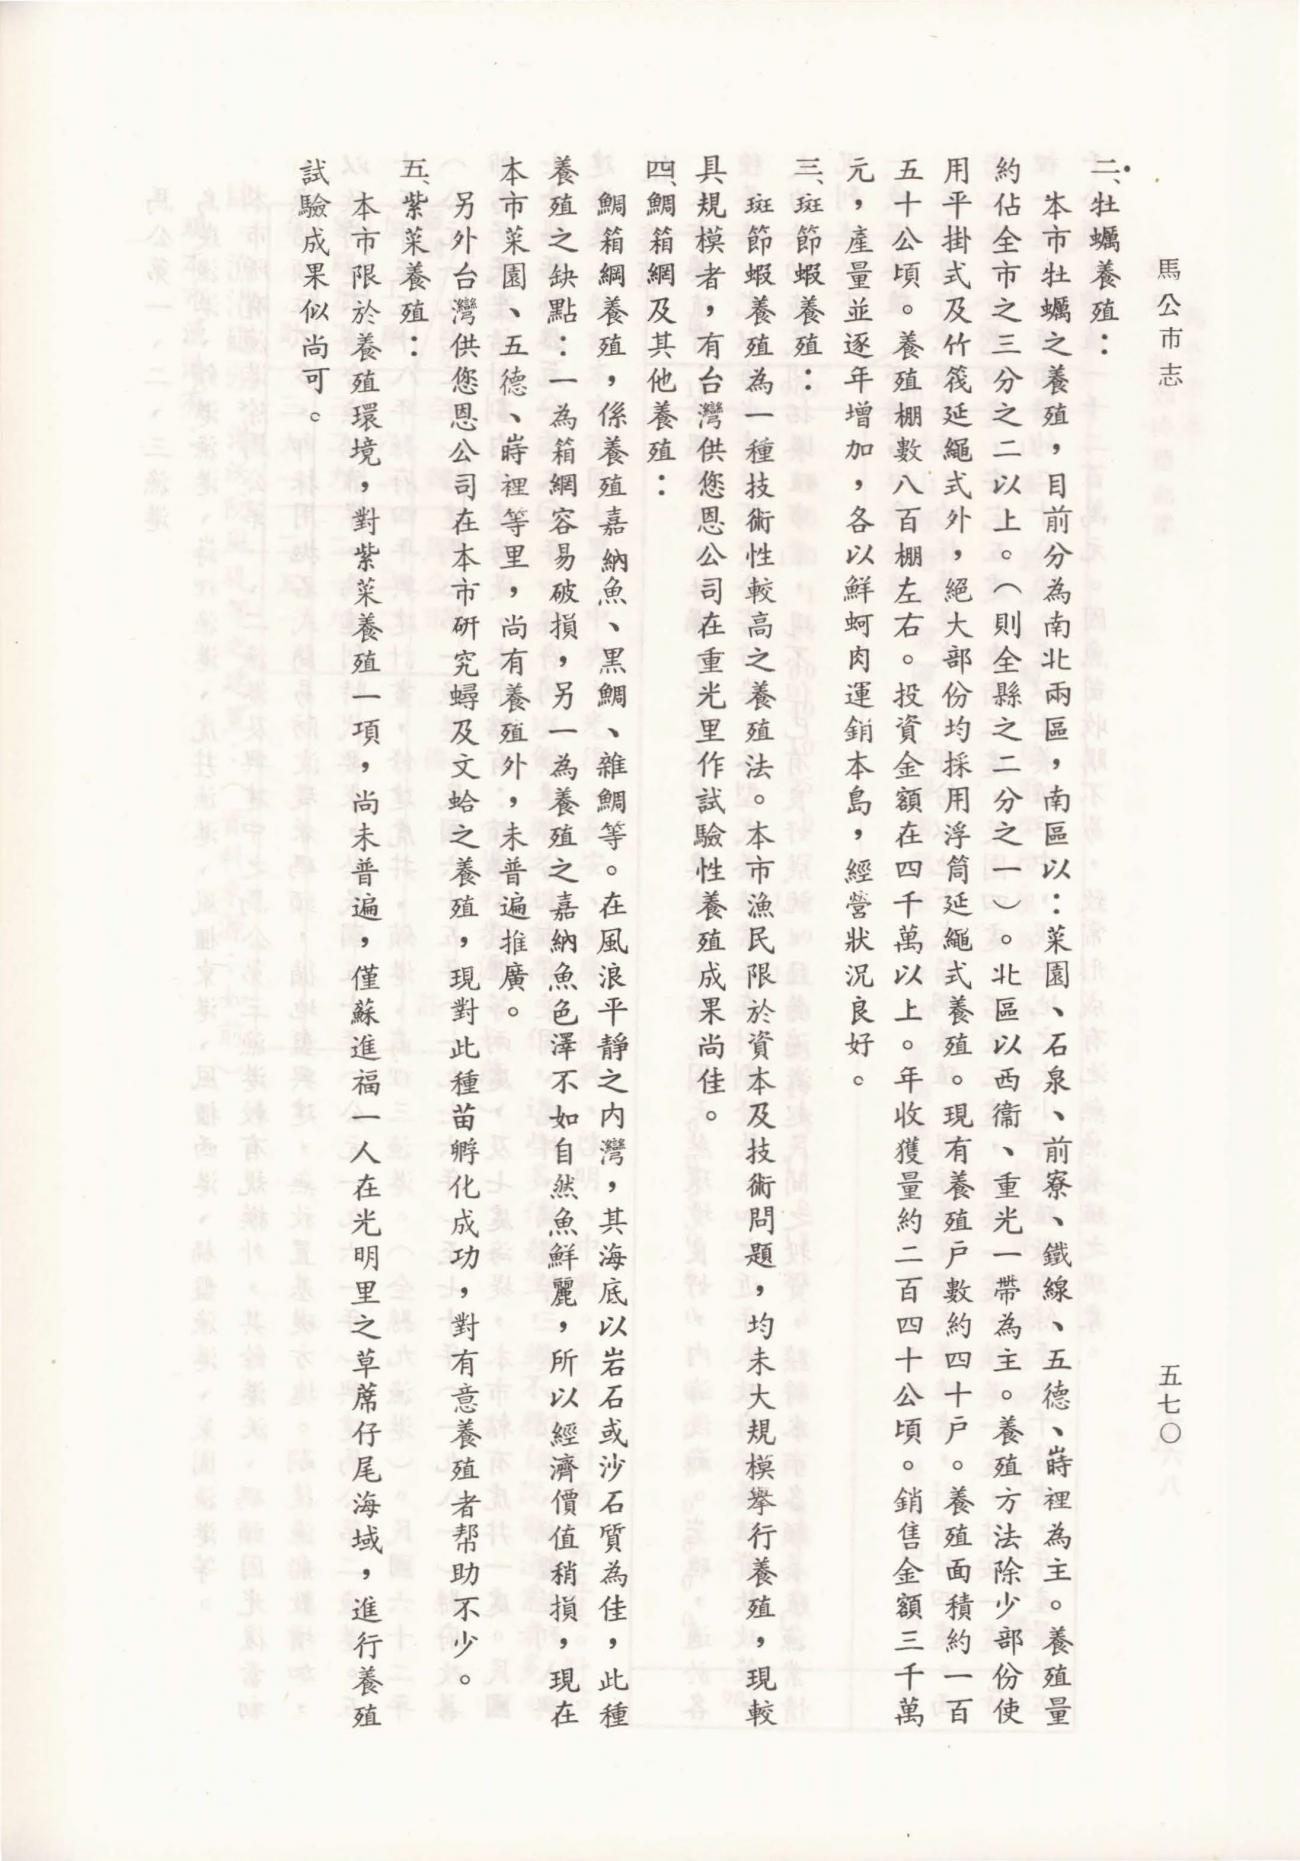 馬公市志
五七〇
二、牡蠣養殖：
本市牡蠣之養殖，目前分為南北兩區，南區以：菜園、石泉、前寮、鐵線、五德、嵵裡為主。養殖量
約佔全市之三分之二以上。（則全縣之二分之一）。北區以西衞、重光一帶為主。養殖方法除少部份使
用平掛式及竹筏延繩式外，絕大部份均採用浮筒延繩式養殖。現有養殖戶數約四十戶。養殖面積約一百
五十公頃。養殖棚數八百棚左右。投資金額在四千萬以上。年收獲量約二百四十公頃。銷售金額三千萬
元，產量並逐年增加，各以鮮蚵肉運銷本島，經營狀況良好。
三、斑節蝦養殖：
斑節蝦養殖為一種技術性較高之養殖法。本市漁民限於資本及技術問題，均未大規模擧行養殖，現較
具規模者，有台灣供您恩公司在重光里作試驗性養殖成果尚佳。
四、鯛箱網及其他養殖：
鯛箱綱養殖，係養殖嘉納魚、黑鯛、雜鯛等。在風浪平靜之內灣，其海底以岩石或沙石質為佳，此種
養殖之缺點：一為箱網容易破損，另一為養殖之嘉納魚色澤不如自然魚鮮麗，所以經濟價值稍損，現在
本市菜園、五德、嵵裡等里，尚有養殖外，未普遍推廣。
另外台灣供您恩公司在本市研究蟳及文蛤之養殖，現對此種苗孵化成功，對有意養殖者帮助不少。
五、紫菜養殖：
本市限於養殖環境，對紫菜養殖一項，尚未普遍，僅蘇進福一人在光明里之草蓆仔尾海域，進行養殖
試驗成果似尚可。